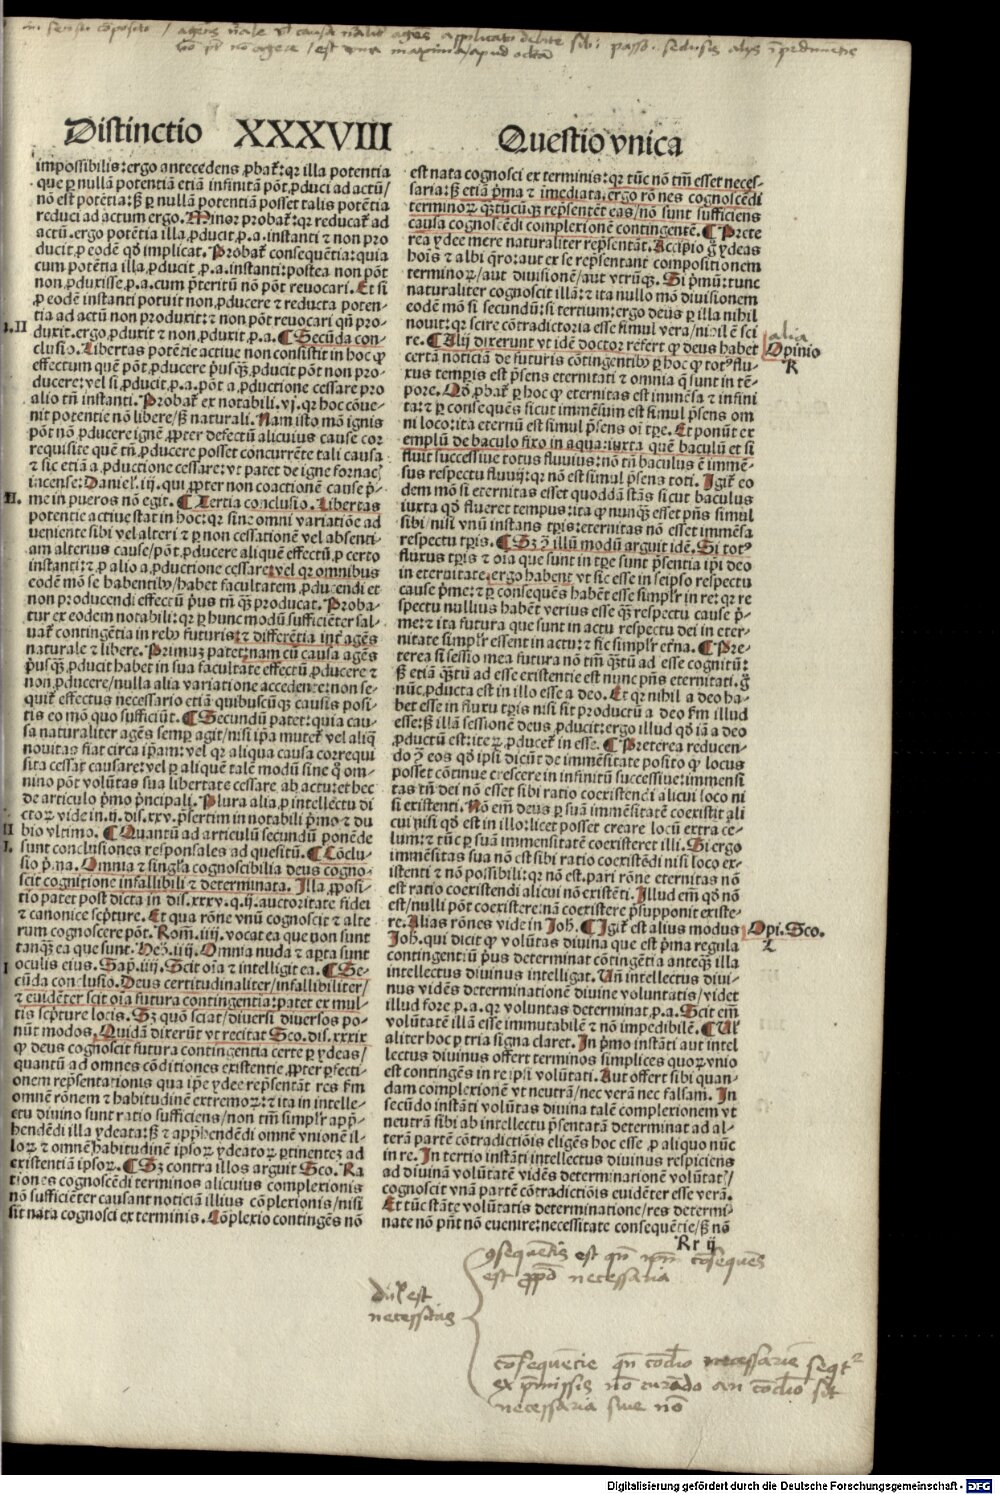 in sensu cōposito / agēs nāle vl causa nālit agēs applicato debite sibi passo. seclusis alijs īpedimētis
nō pt nō agere / est vna maxima apud
Distinctio XXXVIII Questio vnica
impossibilis: ergo antecedens ꝓbat᷑: qꝛ illa potentia
que ꝑ nullā potentiā etiā infinitā pōt ꝓduci ad actū/
nō est potētia: sꝫ ꝑ nullā potentiā posset talis potētia
reduci ad actum ergo. Minor probat᷑: qꝛ reducat᷑ ad
actū. ergo potētia illa ꝓducit ꝓ.a. instanti ⁊ non pro
ducit ꝓ eodē qd̄ implicat. Probat᷑ consequētia: quia
cum potētia illa ꝓducit ꝓ.a. instanti: postea non pōt
non ꝓduxisse ꝓ.a. cum p̄teritū nō pōt reuocari. Et si
ꝓ eodē instanti potuit non ꝓducere ⁊ reducta poten-
tia ad actū non produxit: ⁊ non pōt reuocari qn̄ pro-
duxit. ergo ꝓduxit ⁊ non ꝓduxit ꝓ.a. ¶ Secūda con-
clusio. Libertas potētie actiue non consistit in hoc ꝙ
effectum quē pōt ꝓducere p̄usqꝫ ꝓducit pōt non pro-
ducere: vel si ꝓducit ꝓ.a. pōt a ꝓductione cessare pro
alio tn̄ instanti. Probat᷑ ex notabili. vj. qꝛ hoc cōue-
nit potentie nō libere/sꝫ naturali. Nam isto mō ignis
pōt nō ꝓducere ignē ꝓpter defectū alicuius cause cor
requisite quē tn̄ ꝓducere posset concurrēte tali causa
⁊ sic etiā a ꝓductione cessare: vt patet de igne fornac̄
incense: Daniel. iij. qui ꝓpter non coactionē cause p̄-
me in pueros nō egit. ¶ Tertia conclusio. Libertas
potentie actiue stat in hoc: qꝛ sine omni variatiōe ad
ueniente sibi vel alteri ⁊ ꝑ non cessationē vel absenti-
am alterius cause/pōt ꝓducere aliquē effectū ꝓ certo
instanti: ⁊ ꝓ alio a ꝓductione cessare: vel qꝛ omnibus
codē mō se habentibꝰ/habet facultatem ꝓducendi et
non producendi effectū p̄us tn̄ qꝫ producat. Proba-
tur ex eodem notabili: qꝛ ꝑ hunc modū sufficiēter sal-
uat᷑ contingētia in rebꝰ futuris: ⁊ differētia int̄ agēs
naturale ⁊ libere. Primuꝫ patet: nam cū causa agēs
p̄usqꝫ ꝓducit habet in sua facultate effectū ꝓducere ⁊
non ꝓducere/nulla alia variatione accedente: non se-
quit᷑ effectus necessario etiā quibuscūqꝫ causis posi-
tis eo mō quo sufficiūt. ¶ Secundū patet: quia cau-
sa naturaliter agēs semꝑ agit/nisi ip̄a mutet᷑ vel aliq̄
nouitas fiat circa ip̄am: vel qꝛ aliqua causa correqui
sita cessat causare: vel ꝑ aliquē talē modū sine q̄ om-
nino pōt volūtas sua libertate cessare ab actu: et hec
de articulo p̄mo p̄ncipali. Plura alia ꝓ intellectu di
ctoꝝ vide in. ij. dis. xxv. p̄sertim in notabili p̄mo ⁊ du
bio vltimo. ¶ Quantū ad articulū secundū ponēde
sunt conclusiones responsales ad quesitū. ¶ Cōclu-
sio p̄na. Omnia ⁊ singl̄a cognoscibilia deus cogno-
scit cognitione infallibili ⁊ determinata. Illa ꝓposi-
tio patet post dicta in dis. xxxv. q. ij. auctoritate fidei
⁊ canonice scp̄ture. Et qua rōne vnū cognoscit ⁊ alte
rum cognoscere pōt. Rom̄. iiij. vocat ea que non sunt
tanqꝫ ea que sunt. Heb̄. iiij. Omnia nuda ⁊ aꝑta sunt
oculis eius. Sap̄. iiij. Scit oīa ⁊ intelligit ea. ¶ Se-
cūda conclusio. Deus certitudinaliter/infallibiliter/
⁊ euidēter scit oīa futura contingentia: patet ex mul-
tis scp̄ture locis. Sꝫ quō sciat/diuersi diuersos po-
nūt modos. Quidā dixerūt vt recitat Sco. dis. xxxix
ꝙ deus cognoscit futura contingentia certe ꝑ ydeas/
quantū ad omnes cōditiones existentie ꝓpter ꝑfecti-
onem rep̄sentationis qua ip̄e ydee rep̄sentāt res fm̄
omnē rōnem ⁊ habitudinē extremoꝝ: ⁊ ita in intelle-
ctu diuino sunt ratio sufficiens/non tm̄ simplr̄ app̄-
hendēdi illa ydeata: sꝫ ⁊ app̄hendēdi omnē vnionē il-
loꝝ ⁊ omnē habitudinē ipsoꝝ ydeatoꝝ ꝑtinenteꝫ ad
existentiā ipsoꝝ. ¶ Sꝫ contra illos arguit Sco. Ra
tiones cognoscēdi terminos alicuius complexionis
nō sufficiēter causant noticiā illius cōplexionis/nisi
sit nata cognosci ex terminis. Cōplexio contingēs nō
I. II
II.
II
I.
I
est nata cognosci ex terminis: qꝛ tūc nō tm̄ esset neces-
saria: sꝫ etiā p̄ma ⁊ īmediata. ergo rōnes cognoscēdi
terminoꝝ qꝫtūcūqꝫ rep̄sentēt eas/nō sunt sufficiens
causa cognoscēdi complexionē contingentē. ¶ Prete
rea ydee mere naturaliter rep̄sentāt. Accipio ḡ ydeas
hoīs ⁊ albi q̄ro: aut ex se rep̄sentant compositionem
terminoꝝ/aut diuisionē/aut vtrūqꝫ. Si p̄mū: tunc
naturaliter cognoscit illā: ⁊ ita nullo mō diuisionem
eodē mō si secundū: si tertium: ergo deus ꝑ illa nihil
nouit: qꝛ scire cōtradictoria esse simul vera/nihil ē sci
re. ¶ Alij dixerunt vt idē doctor refert ꝙ deus habet
certā noticiā de futuris cōtingentibꝰ ꝑ hoc ꝙ totꝰ flu-
xus temꝑis est p̄sens eternitati ⁊ omnia q̄ sunt in tē-
pore. Qd̄ ꝓbat᷑ ꝑ hoc ꝙ eternitas est īmēsa ⁊ infini
ta: ⁊ ꝑ consequēs sicut immēsum est simul p̄sens om
ni loco: ita eternū est simul p̄sens oī tp̄e. Et ponūt ex
emplū de baculo fixo in aqua: iuxta quē baculū et si
fluit successiue totus fluuius: nō tn̄ baculus ē immē-
sus respectu fluuij: qꝛ nō est simul p̄sens toti. Igit᷑ eo
dem mō si eternitas esset quoddā stās sicut baculus
iuxta qd̄ flueret tempus: ita ꝙ nunqꝫ esset pn̄s simul
sibi/nisi vnū instans tp̄is: eternitas nō esset immēsa
respectu tp̄is. ¶ Sꝫ ꝯ̄ illū modū arguit idē. Si totꝰ
fluxus tp̄is ⁊ oīa que sunt in tp̄e sunt p̄sentia ip̄i deo
in eternitate. ergo habent vt sic esse in seipso respectu
cause p̄me: ⁊ ꝑ consequēs habēt esse simplr̄ in re: qꝛ re
spectu nullius habēt verius esse qꝫ respectu cause p̄-
me: ⁊ ita futura que sunt in actu respectu dei in eter-
nitate simplr̄ essent in actu: ⁊ sic simplr̄ etn̄a. ¶ Pre-
terea si sessio mea futura nō tm̄ qꝫtū ad esse cognitū:
sꝫ etiā qꝫtū ad esse existentie est nunc pn̄s eternitati. ḡ
nūc ꝓducta est in illo esse a deo. Et qꝛ nihil a deo ha-
bet esse in fluxu tp̄is nisi sit productū a deo fm̄ illud
esse: sꝫ illā sessionē deus ꝓducit: ergo illud qd̄ iā a deo
ꝓductū est: iterꝝ ꝓducet᷑ in esse. ¶ Preterea reducen-
do ꝯ̄ eos qd̄ ip̄i dicūt de immēsitate posito ꝙ locus
posset cōtinue crescere in infinitū successiue: immensi
tas tn̄ dei nō esset sibi ratio coexistendi alicui loco ni
si existenti. Nō em̄ deus ꝑ suā immēsitatē coexistit ali
cui nisi qd̄ est in illo: licet posset creare locū extra ce-
lum: ⁊ tūc ꝑ suā immensitatē coexisteret illi. Si ergo
immēsitas sua nō est sibi ratio coexistēdi nisi loco ex-
istenti ⁊ nō possibili: qꝛ nō est. pari rōne eternitas nō
est ratio coexistendi alicui nō existēti. Illud em̄ qd̄ nō
est/nulli pōt coexistere: nā coexistere p̄supponit existe-
re. Alias rōnes vide in Joh̄. ¶ Igit᷑ est alius modus
Joh̄. qui dicit ꝙ volūtas diuina que est p̄ma regula
contingentiū p̄us determinat cōtingētia anteqꝫ illa
intellectus diuinus intelligat. Un̄ intellectus diui-
nus vidēs determinationē diuine voluntatis/videt
illud fore ꝓ.a. qꝛ voluntas determinat ꝓ.a. Scit em̄
volūtatē illā esse immutabilē ⁊ nō impedibilē. ¶ Ul̄
aliter hoc ꝑ tria signa claret. In p̄mo instāti aut intel
lectus diuinus offert terminos simplices quoꝝ vnio
est contingēs in re ip̄si volūtati. Aut offert sibi quan-
dam complexionē vt neutrā/nec verā nec falsam. In
secūdo instāti volūtas diuina talē complexionem vt
neutrā sibi ab intellectu p̄sentatā determinat ad al-
terā partē cōtradictiōis eligēs hoc esse ꝓ aliquo nūc
in re. In tertio instāti intellectus diuinus respiciens
ad diuinā volūtatē vidēs determinationē volūtat̄/
cognoscit vnā partē cōtradictiōis euidēter esse verā.
Et tūc stāte volūtatis determinatione/res determi-
nate nō pn̄t nō euenire: necessitate consequētie/sꝫ nō
alia
Opinio
R
Opi. Sco.
Rr ij
ꝯsequētis est qn̄ consequēs
est ꝓpō necessaria
duplex est
necessitas
consequētie qn̄ ꝯclusio necessarie seqt᷑
ex p̄missis nō curādo an ꝯclusio sit
necessaria siue nō
Digitalisierung gefördert durch die Deutsche Forschungsgemeinschaft - DFG